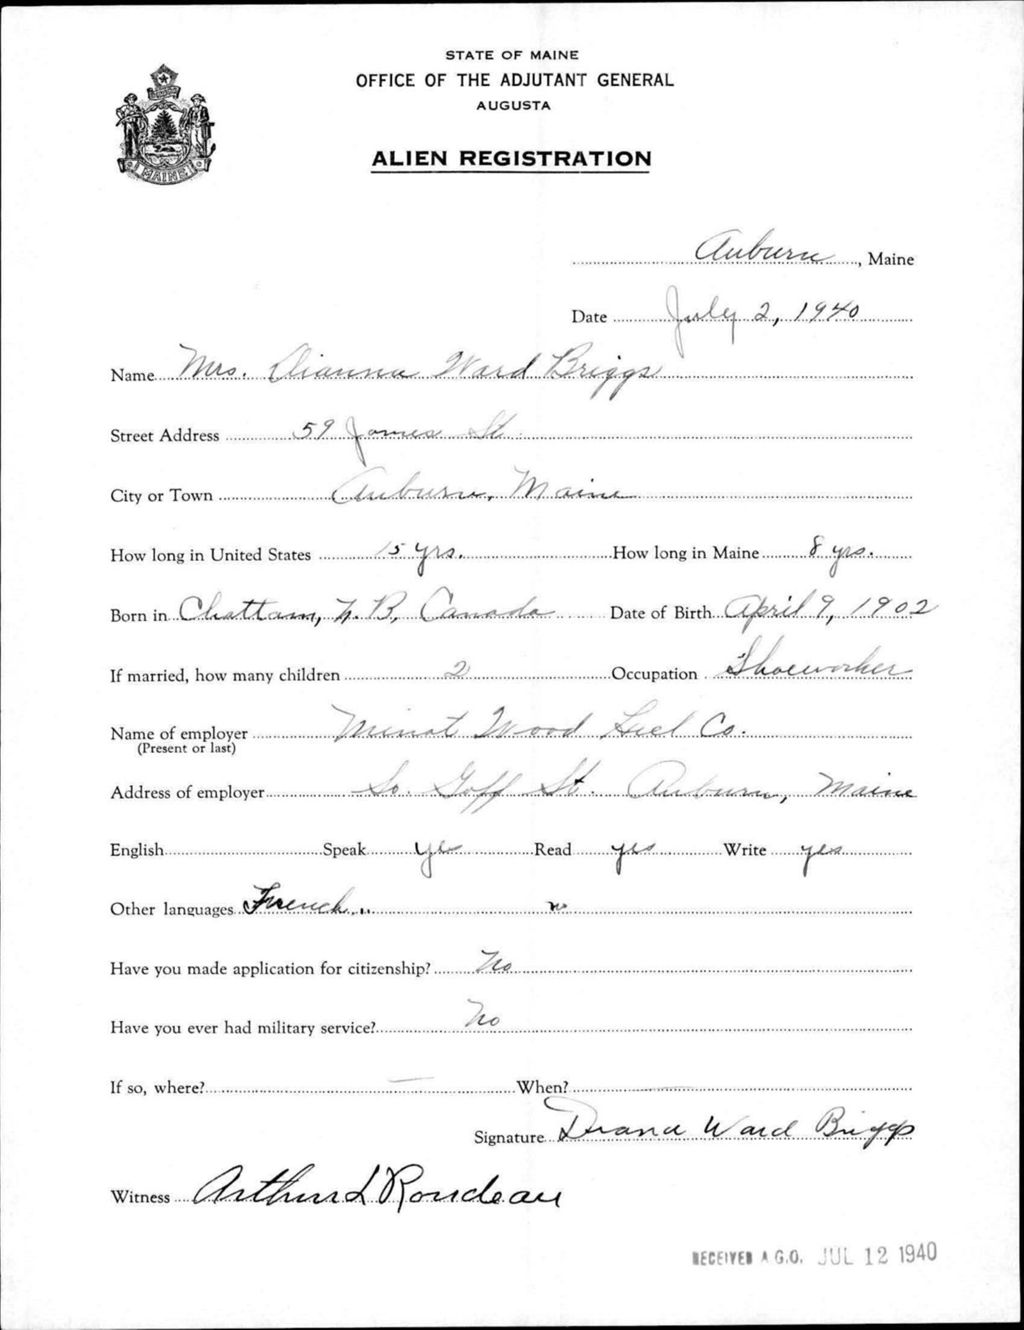 STATE OF MAINE
OFFICE OF THE ADJUTANT GENERAL
AUGUSTA
ALIEN REGISTRATION
MAINE
Auburn, Maine
Date July 2, 1940
Name Mrs. Dianna Ward Briggs
Street Address 59 James St.
City or Town Auburn, Maine
How long in United States 15 yrs. How long in Maine 8 yrs.
Born in Chattam, N.B, Canada Date of Birth April 9, 1902
If married, how many children 2 Occupation Shoeworker
Name of employer Minot Wood Heel Co.
(Present or last)
Address of employer So. Goff St. Auburn, Maine
English Speak yes Read yes Write yes
Other languages French
Have you made application for citizenship? No
Have you ever had military service? No
If so, where? — When? —
Signature Diana Ward Briggs
Witness Arthur L Rondeau
RECEIVED A.G.O. JUL 12 1940